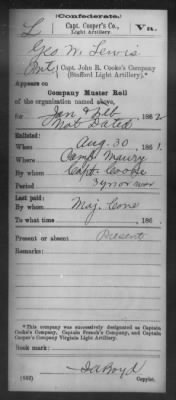 (Confederate.)
L Capt. Cooper's Co., Va.
Light Artillery.
Geo. W. Lewis
Pvt, Capt. John R. Cooke's Company
(Stafford Light Artillery).*
Appears on
Company Muster Roll
of the organization named above,
for Jan & Feb, 1862
Not Dated
Enlisted:
When Aug. 30, 1861.
Where Camp Maury
By whom Capt. Cooke
Period 3 yrs or war
Last paid:
By whom Maj. Cone
To what time , 186 .
Present or absent Present
Remarks:
*This company was successively designated as Captain
Cooke's Company, Captain French's Company, and Captain
Cooper's Company Virginia Light Artillery.
Book mark:
(642) Copyist.